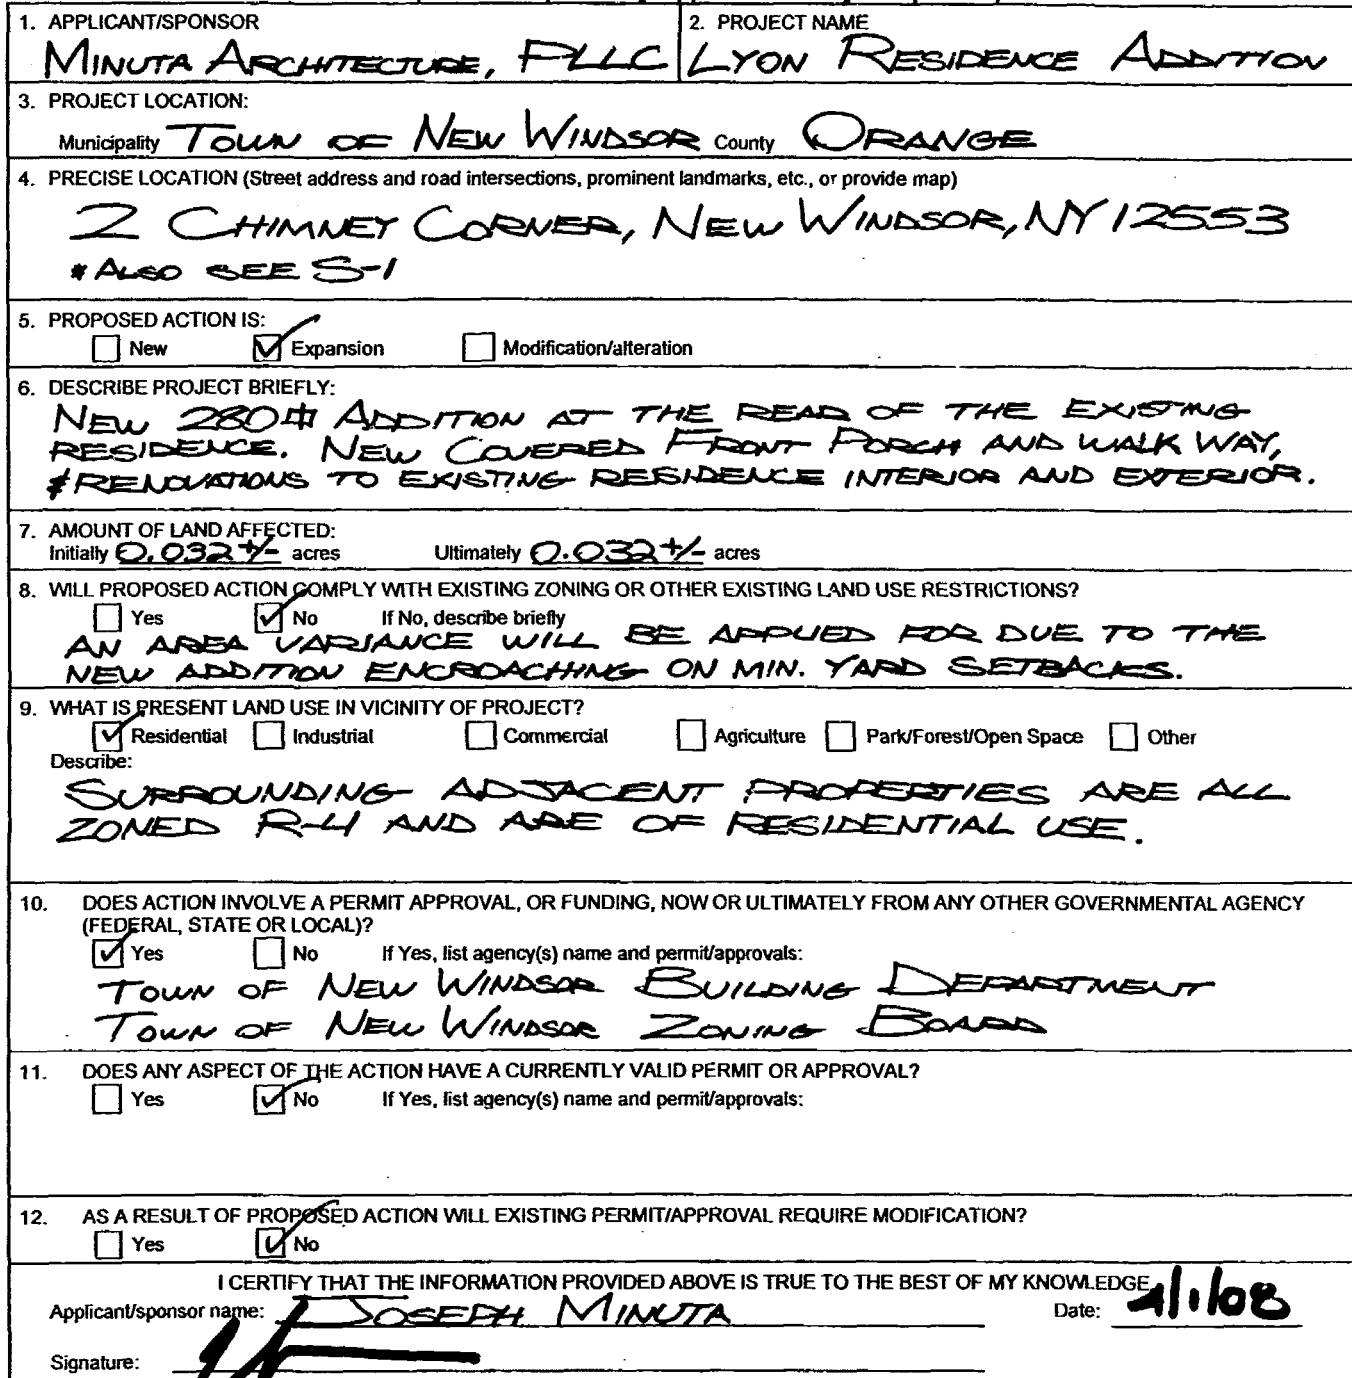 1. APPLICANT/SPONSOR
MINUTA ARCHITECTURE, PLLC
2. PROJECT NAME
LYON RESIDENCE ADDITION
3. PROJECT LOCATION:
Municipality TOWN OF NEW WINDSOR County ORANGE
4. PRECISE LOCATION (Street address and road intersections, prominent landmarks, etc., or provide map)
2 CHIMNEY CORNER, NEW WINDSOR, NY 12553
* ALSO SEE S-1
5. PROPOSED ACTION IS:
☐ New ☑ Expansion ☐ Modification/alteration
6. DESCRIBE PROJECT BRIEFLY:
NEW 280 ⌗ ADDITION AT THE REAR OF THE EXISTING
RESIDENCE. NEW COVERED FRONT PORCH AND WALK WAY,
& RENOVATIONS TO EXISTING RESIDENCE INTERIOR AND EXTERIOR.
7. AMOUNT OF LAND AFFECTED:
Initially 0.032 +/- acres Ultimately 0.032 +/- acres
8. WILL PROPOSED ACTION COMPLY WITH EXISTING ZONING OR OTHER EXISTING LAND USE RESTRICTIONS?
☐ Yes ☑ No If No, describe briefly
AN AREA VARIANCE WILL BE APPLIED FOR DUE TO THE
NEW ADDITION ENCROACHING ON MIN. YARD SETBACKS.
9. WHAT IS PRESENT LAND USE IN VICINITY OF PROJECT?
☑ Residential ☐ Industrial ☐ Commercial ☐ Agriculture ☐ Park/Forest/Open Space ☐ Other
Describe:
SURROUNDING ADJACENT PROPERTIES ARE ALL
ZONED R-4 AND ARE OF RESIDENTIAL USE.
10. DOES ACTION INVOLVE A PERMIT APPROVAL, OR FUNDING, NOW OR ULTIMATELY FROM ANY OTHER GOVERNMENTAL AGENCY
(FEDERAL, STATE OR LOCAL)?
☑ Yes ☐ No If Yes, list agency(s) name and permit/approvals:
TOWN OF NEW WINDSOR BUILDING DEPARTMENT
TOWN OF NEW WINDSOR ZONING BOARD
11. DOES ANY ASPECT OF THE ACTION HAVE A CURRENTLY VALID PERMIT OR APPROVAL?
☐ Yes ☑ No If Yes, list agency(s) name and permit/approvals:
12. AS A RESULT OF PROPOSED ACTION WILL EXISTING PERMIT/APPROVAL REQUIRE MODIFICATION?
☐ Yes ☑ No
I CERTIFY THAT THE INFORMATION PROVIDED ABOVE IS TRUE TO THE BEST OF MY KNOWLEDGE
Applicant/sponsor name: JOSEPH MINUTA Date:
Signature: